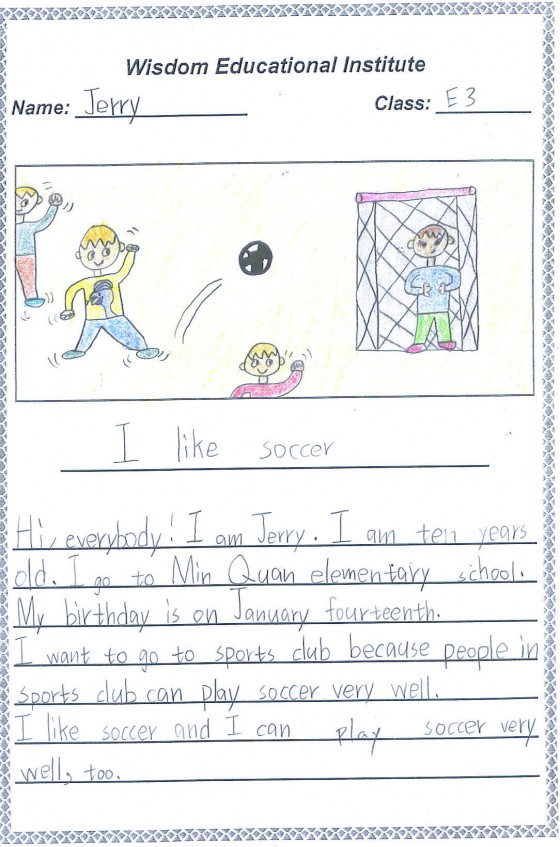 Wisdom Educational Institute
Name: Jerry Class: E3
I like soccer
Hi, everybody! I am Jerry. I am ten years
old. I go to Min Quan elementary school.
My birthday is on January fourteenth.
I want to go to sports club because people in
sports club can play soccer very well.
I like soccer and I can play soccer very
well, too.